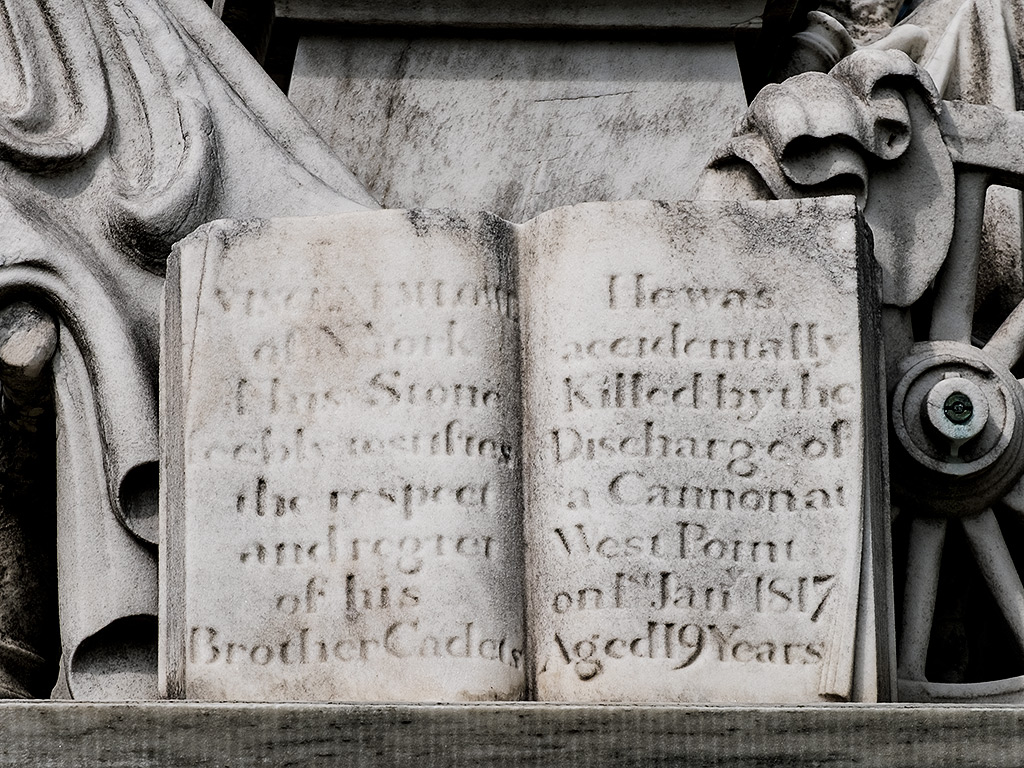 of York
This Stone
feebly testifies
the respect
and regret
of his
Brother Cadets
He was
accidentally
Killed by the
Discharge of
a Cannon at
West Point
on 1st Jany 1817
Aged 19 Years